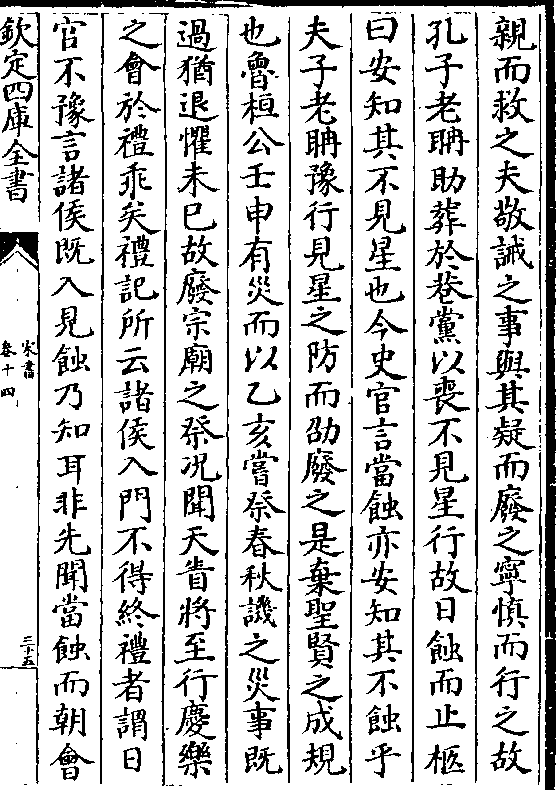 親而救之夫敬誡之事與其疑而廢之寧慎而行之故
孔子老聃助葬於巷黨以喪不見星行故日蝕而止柩
曰安知其不見星也今史官言當蝕亦安知其不蝕乎
夫子老聃豫行見星之防而劭廢之是棄聖賢之成規
也魯桓公壬申有災而以乙亥嘗祭春秋譏之災事既
過猶退懼未已故廢宗廟之祭況聞天眚將至行慶樂
之會於禮乖矣禮記所云諸侯入門不得終禮者謂日
官不豫言諸侯既入見蝕乃知耳非先聞當蝕而朝會
欽定四庫全書
宋書
卷十四
三十五